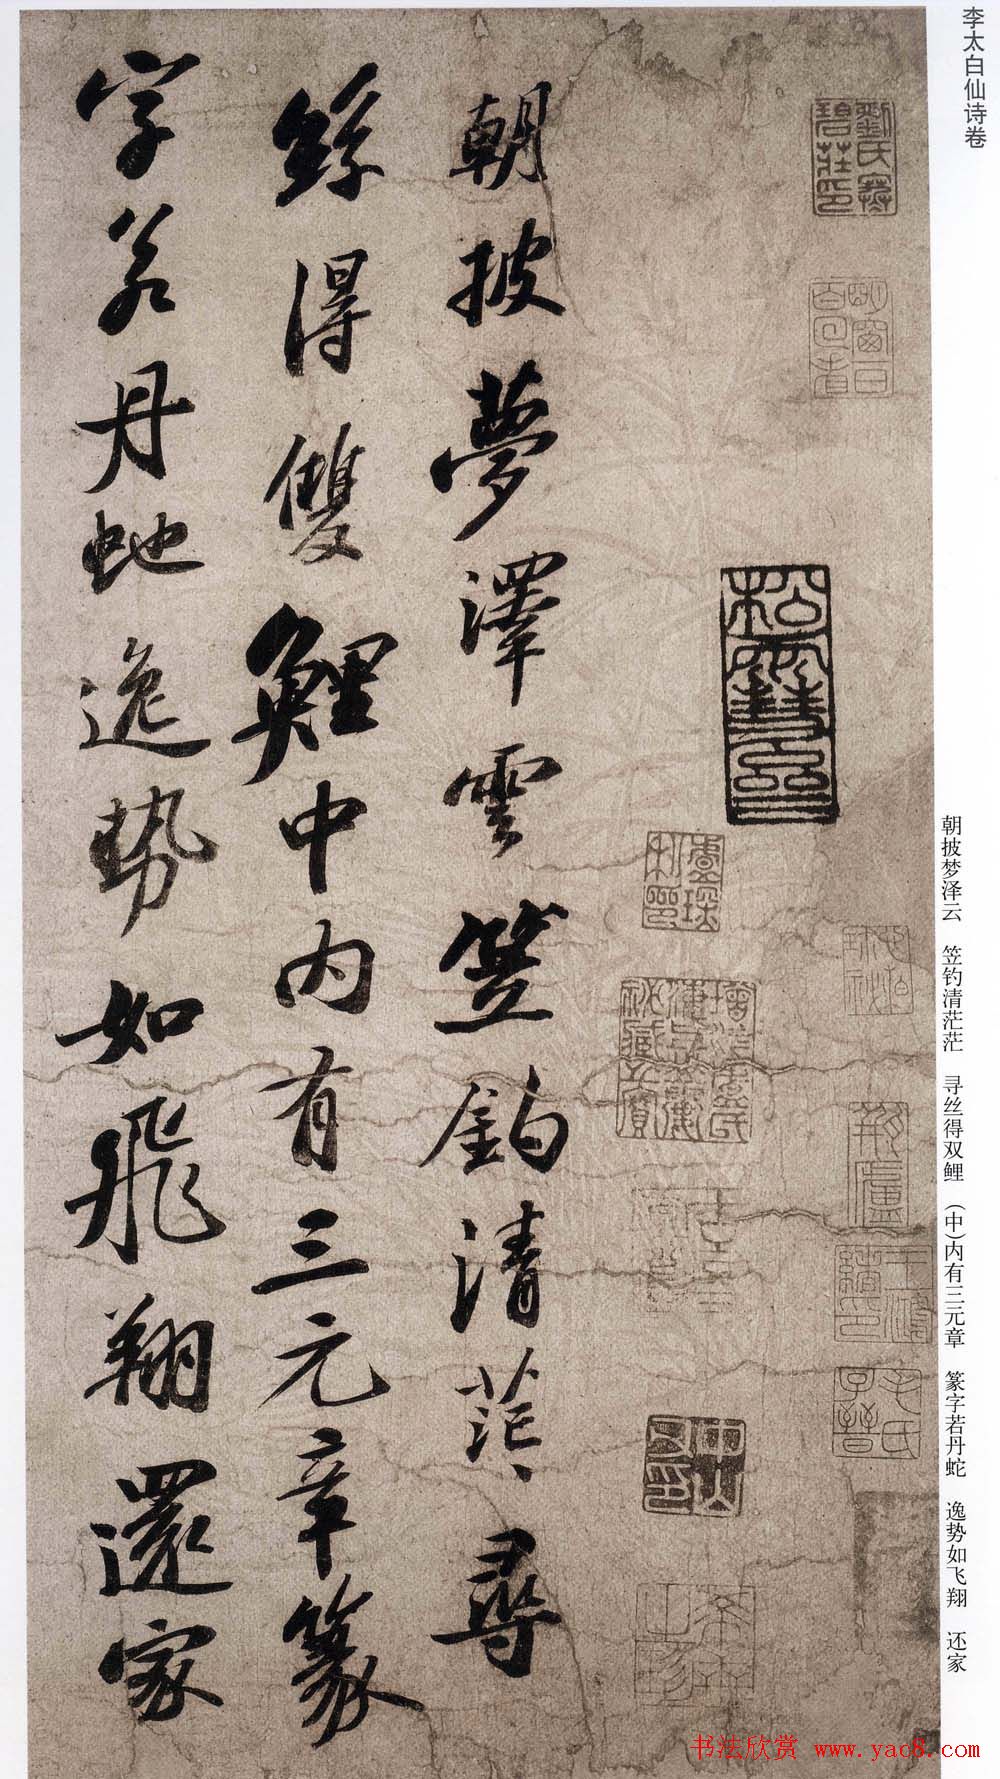 李太白仙诗卷
朝披夢澤雲笠釣清茫〻尋
絲得雙鯉中内有三元章篆
字若丹虵逸勢如飛翔還家
朝披梦泽云 笠钓清茫茫 寻丝得双鲤 (中)内有三元章 篆字若丹蛇 逸势如飞翔 还家
书法欣赏 www.yac8.com